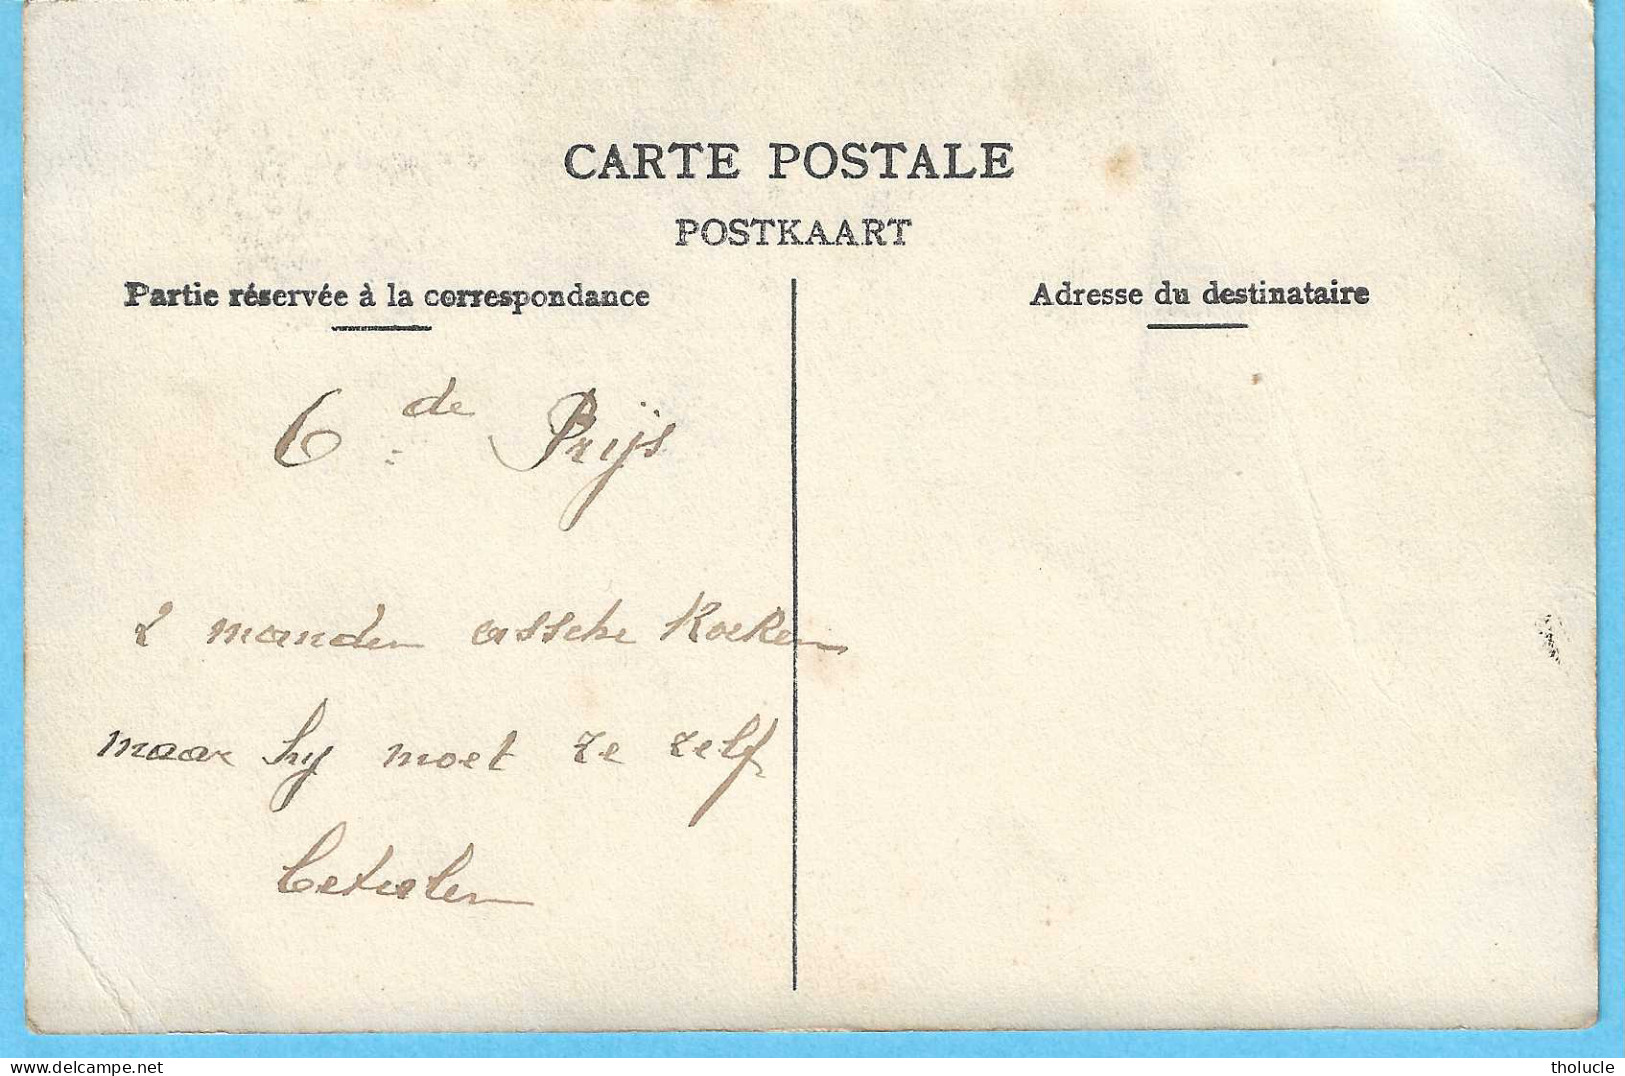 CARTE POSTALE
POSTKAART
Partie réservée à la correspondance
Adresse du destinataire
6de Prijs
2 manden assche Koeken
maar hy moet ze zelf
betaelen
delcampe.net
tholucle